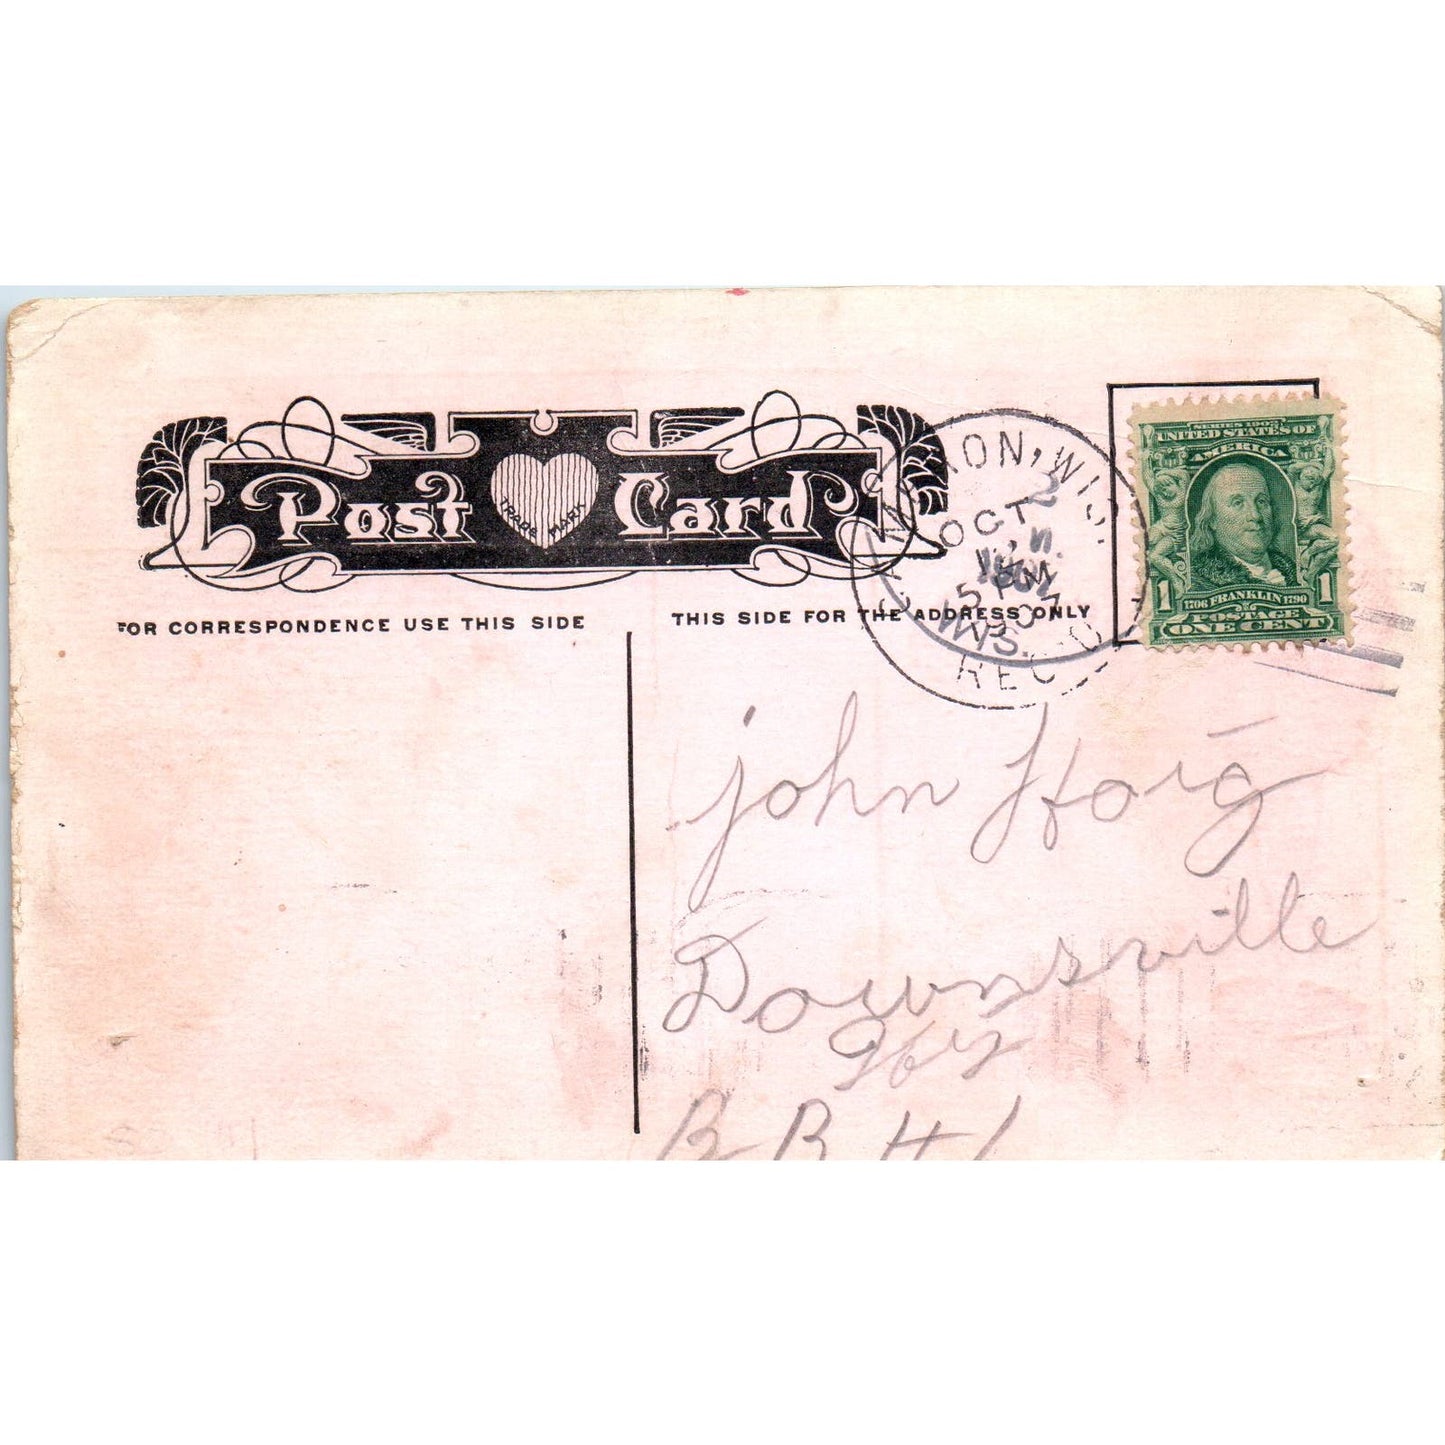 Post Card
TRADE MARK
FOR CORRESPONDENCE USE THIS SIDE
THIS SIDE FOR THE ADDRESS ONLY
OCT
5 PM
WIS.
REC'D
SERIES 1902
UNITED STATES OF
AMERICA
1 1706 FRANKLIN 1790 1
POSTAGE
ONE CENT
John Hoig
Downsville